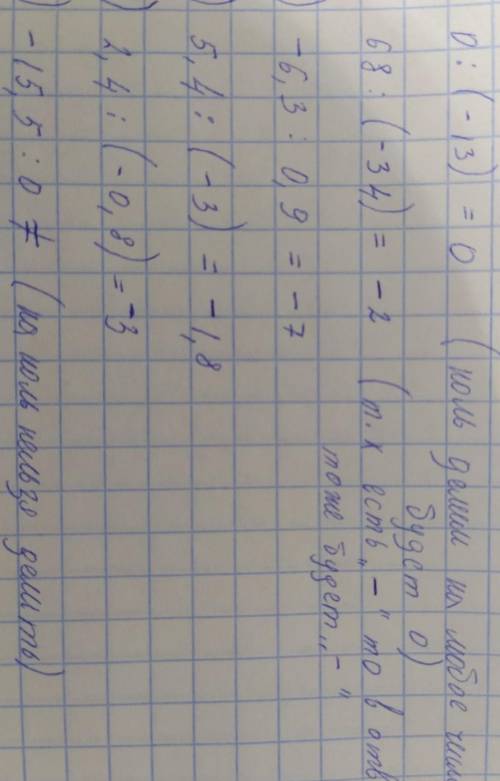 0 : (-13) = 0 (ноль делим на любое
будет 0)
68 : (-34) = -2 (т.к есть „-" то в
тоже будет „-"
-6,3 : 0,9 = -7
5,4 : (-3) = -1,8
2,4 : (-0,8) = -3
-15,5 : 0 ≠ (на ноль нельзя делить)